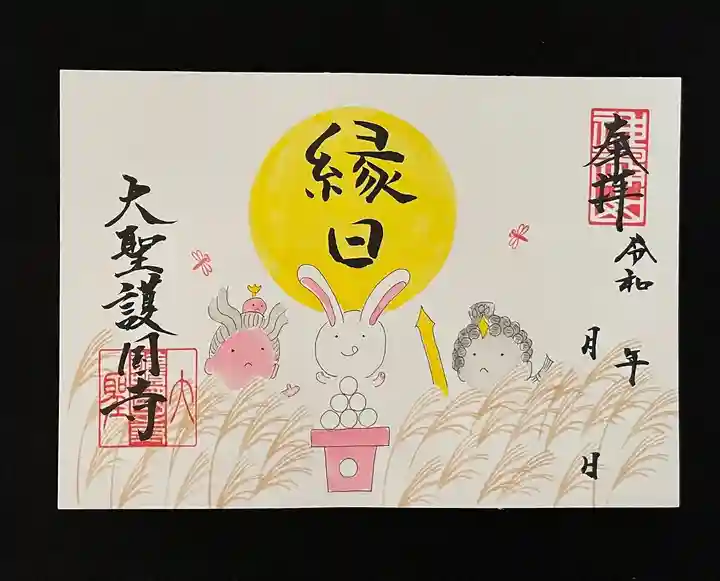 奉拝
令和 年
月 日
縁日
大聖護国寺